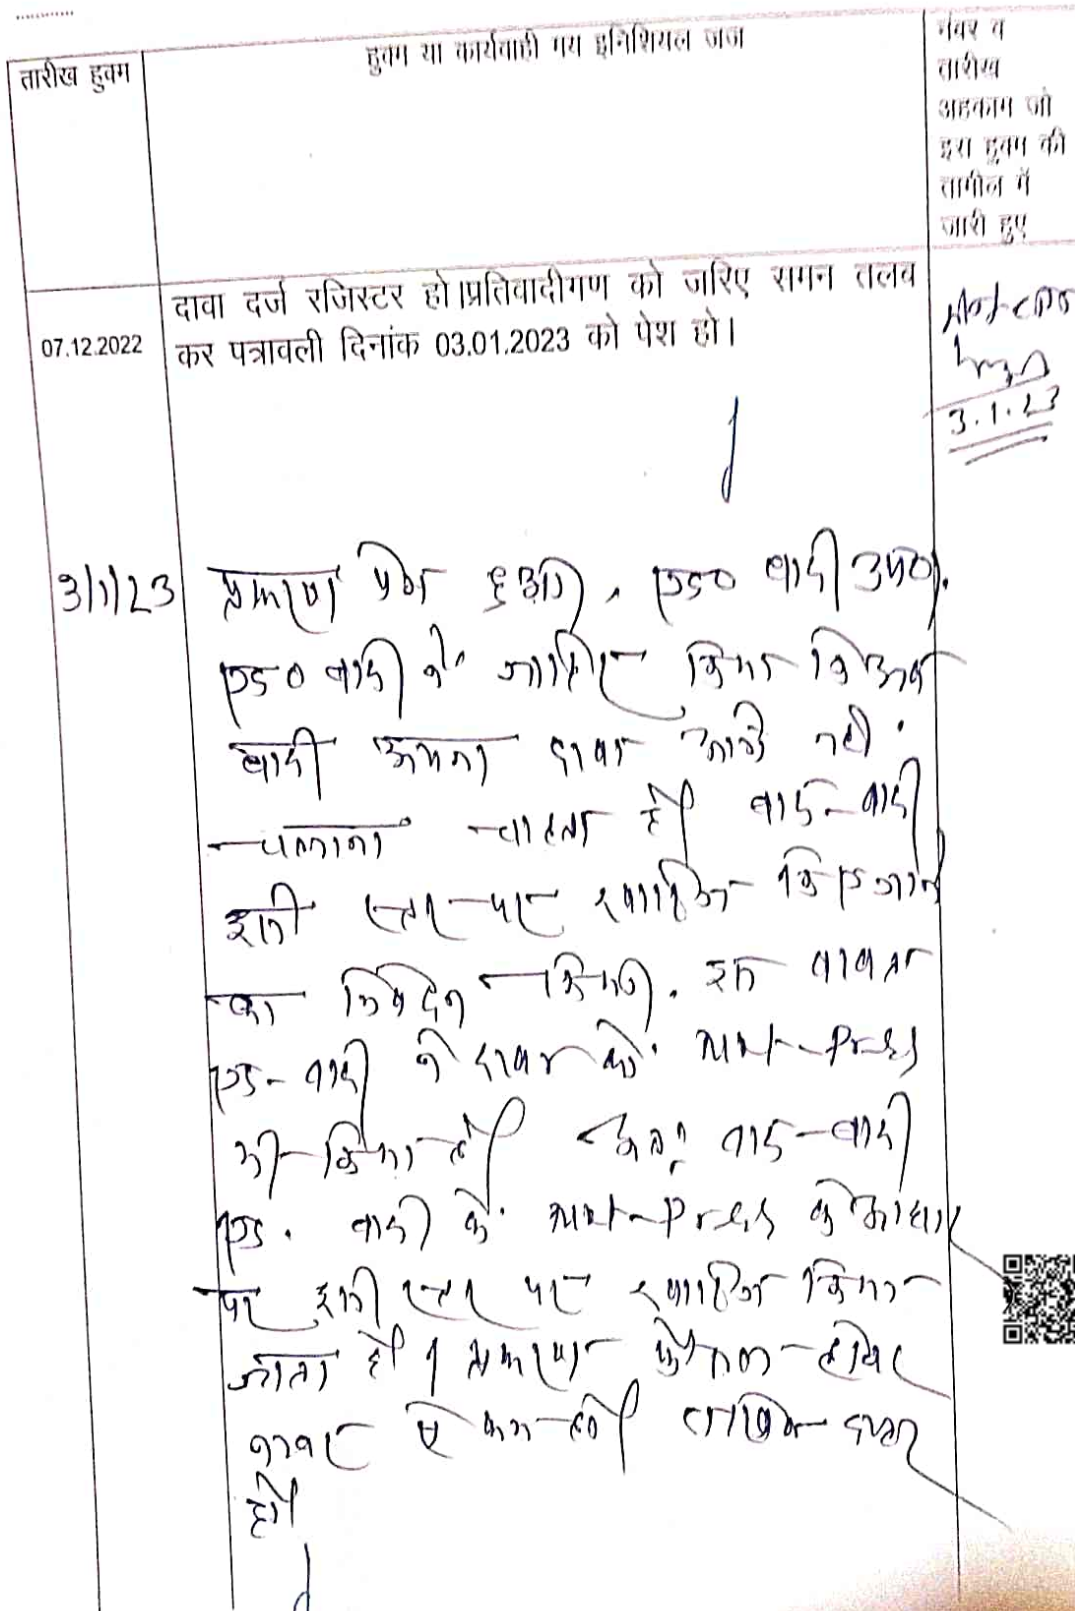 तारीख हुक्म
हुक्म या कार्यवाही मय इनिशियल जज
नंबर व
तारीख
अहकाम जो
इस हुक्म की
तामील में
जारी हुए
07.12.2022
दावा दर्ज रजिस्टर हो।प्रतिवादीगण को जरिए समन तलब
कर पत्रावली दिनांक 03.01.2023 को पेश हो।
3.1.23
3/1/23
प्रकरण पेश हुआ। एड० वादी उप०।
एड० वादी ने जाहिर किया कि अब
वादी अपना दावा आगे नहीं
चलाना चाहता है। वाद-वादी
इसी स्तर पर खारिज किए जाने
का निवेदन किया। इस बाबत
एड- वादी ने दावा को Not-Press
भी किया है। अतः वाद-वादी
एड. वादी के Not-Press के आधार
पर इसी स्तर पर खारिज किया
जाता है। प्रकरण फैसल होकर
नम्बर से कम हो। दाखिल दफ्तर
हो।